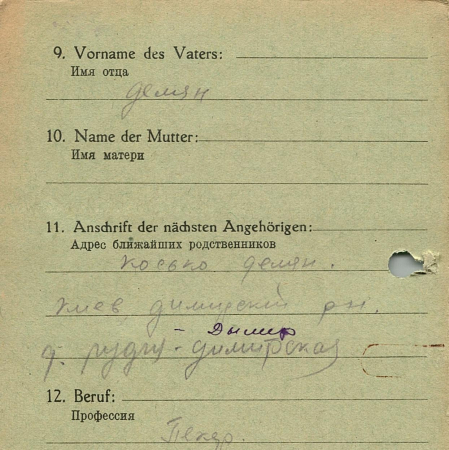 9. Vorname des Vaters:
Имя отца
Демян
10. Name der Mutter:
Имя матери
11. Anschrift der nächsten Angehörigen:
Адрес ближайших родственников
Косько Демян.
Киев Димирский
- Дымер
Димирская
12. Beruf:
Профессия
Пекар.